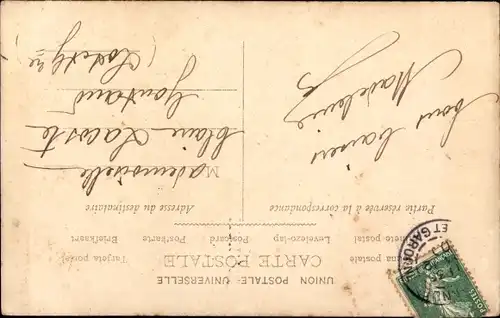 UNION POSTALE UNIVERSELLE
CARTE POSTALE
Tarjeta postal
Briefkaart
Postkarte
Postcard
Levelezo-lap
postal
postale
Adresse du destinataire
Partie réservée à la correspondance
M
Mademoiselle
Lacoste
Gontaud
bons baisers
Madeleine
ET GARONNE